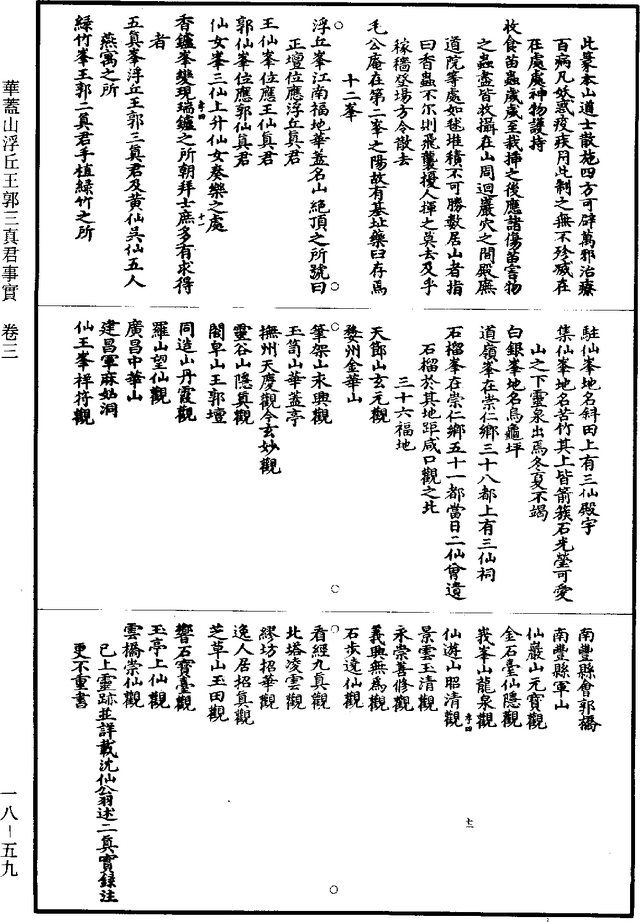 華蓋山浮丘王郭三真君事實　卷三
此篆本山道士散施四方可辟萬邪治療
百病凡妖惑疫疾用此制之無不殄滅在
在處處神物護持
收食苗蟲歲歲至栽揷之後應諸傷苗害物
之蟲盡皆收攝在山周迴巖穴之間殿廡
道院等處如毬堆積不可勝數居山者指
曰香蟲不尔則飛蠆擾人揮之莫去及乎
稼穡登場方令散去
毛公庵在第二峯之陽故有基址藥臼存焉
十二峯
浮丘峯江南福地華蓋名山絕頂之所號曰
正壇位應浮丘真君
王仙峯位應王仙真君
郭仙峯位應郭仙真君
仙女峯三仙上升仙女奏樂之處
香鑪峯變現瑞鑪之所朝拜士庶多有求得
者
五真峯浮丘王郭三真君及黃仙吳仙五人
燕寓之所
綠竹峯王郭二真君手植綠竹之所
駐仙峯地名斜田上有三仙殿宇
集仙峯地名苦竹其上皆箭簇石光瑩可愛
山之下靈泉出焉冬夏不竭
白銀峯地名烏龜坪
道嶺峯在崇仁鄉三十八都上有三仙祠
石榴峯在崇仁鄉五十一都當日二仙曾遺
石榴於其地距咸口觀之北
三十六福地
天鄧山玄元觀
婺州金華山
筆架山永興觀
玉笥山華蓋亭
撫州天慶觀今玄妙觀
靈谷山隱真觀
閤皁山王郭壇
同造山丹霞觀
羅山望仙觀
廣昌中華山
建昌軍麻姑洞
仙王峯祥符觀
南豐縣會郭橋
南豐縣軍山
仙巖山元寶觀
金石臺仙隱觀
莪峯山龍泉觀
仙遊山昭清觀
景雲玉清觀
永崇善修觀
義興無為觀
石步達仙觀
看經九真觀
北塔凌雲觀
繆坊招華觀
逸人居招真觀
芝草山玉田觀
響石寶臺觀
玉亭上仙觀
雲橋崇仙觀
已上靈跡並詳載沈仙公羽述二真實錄注
更不重書
一八—五九